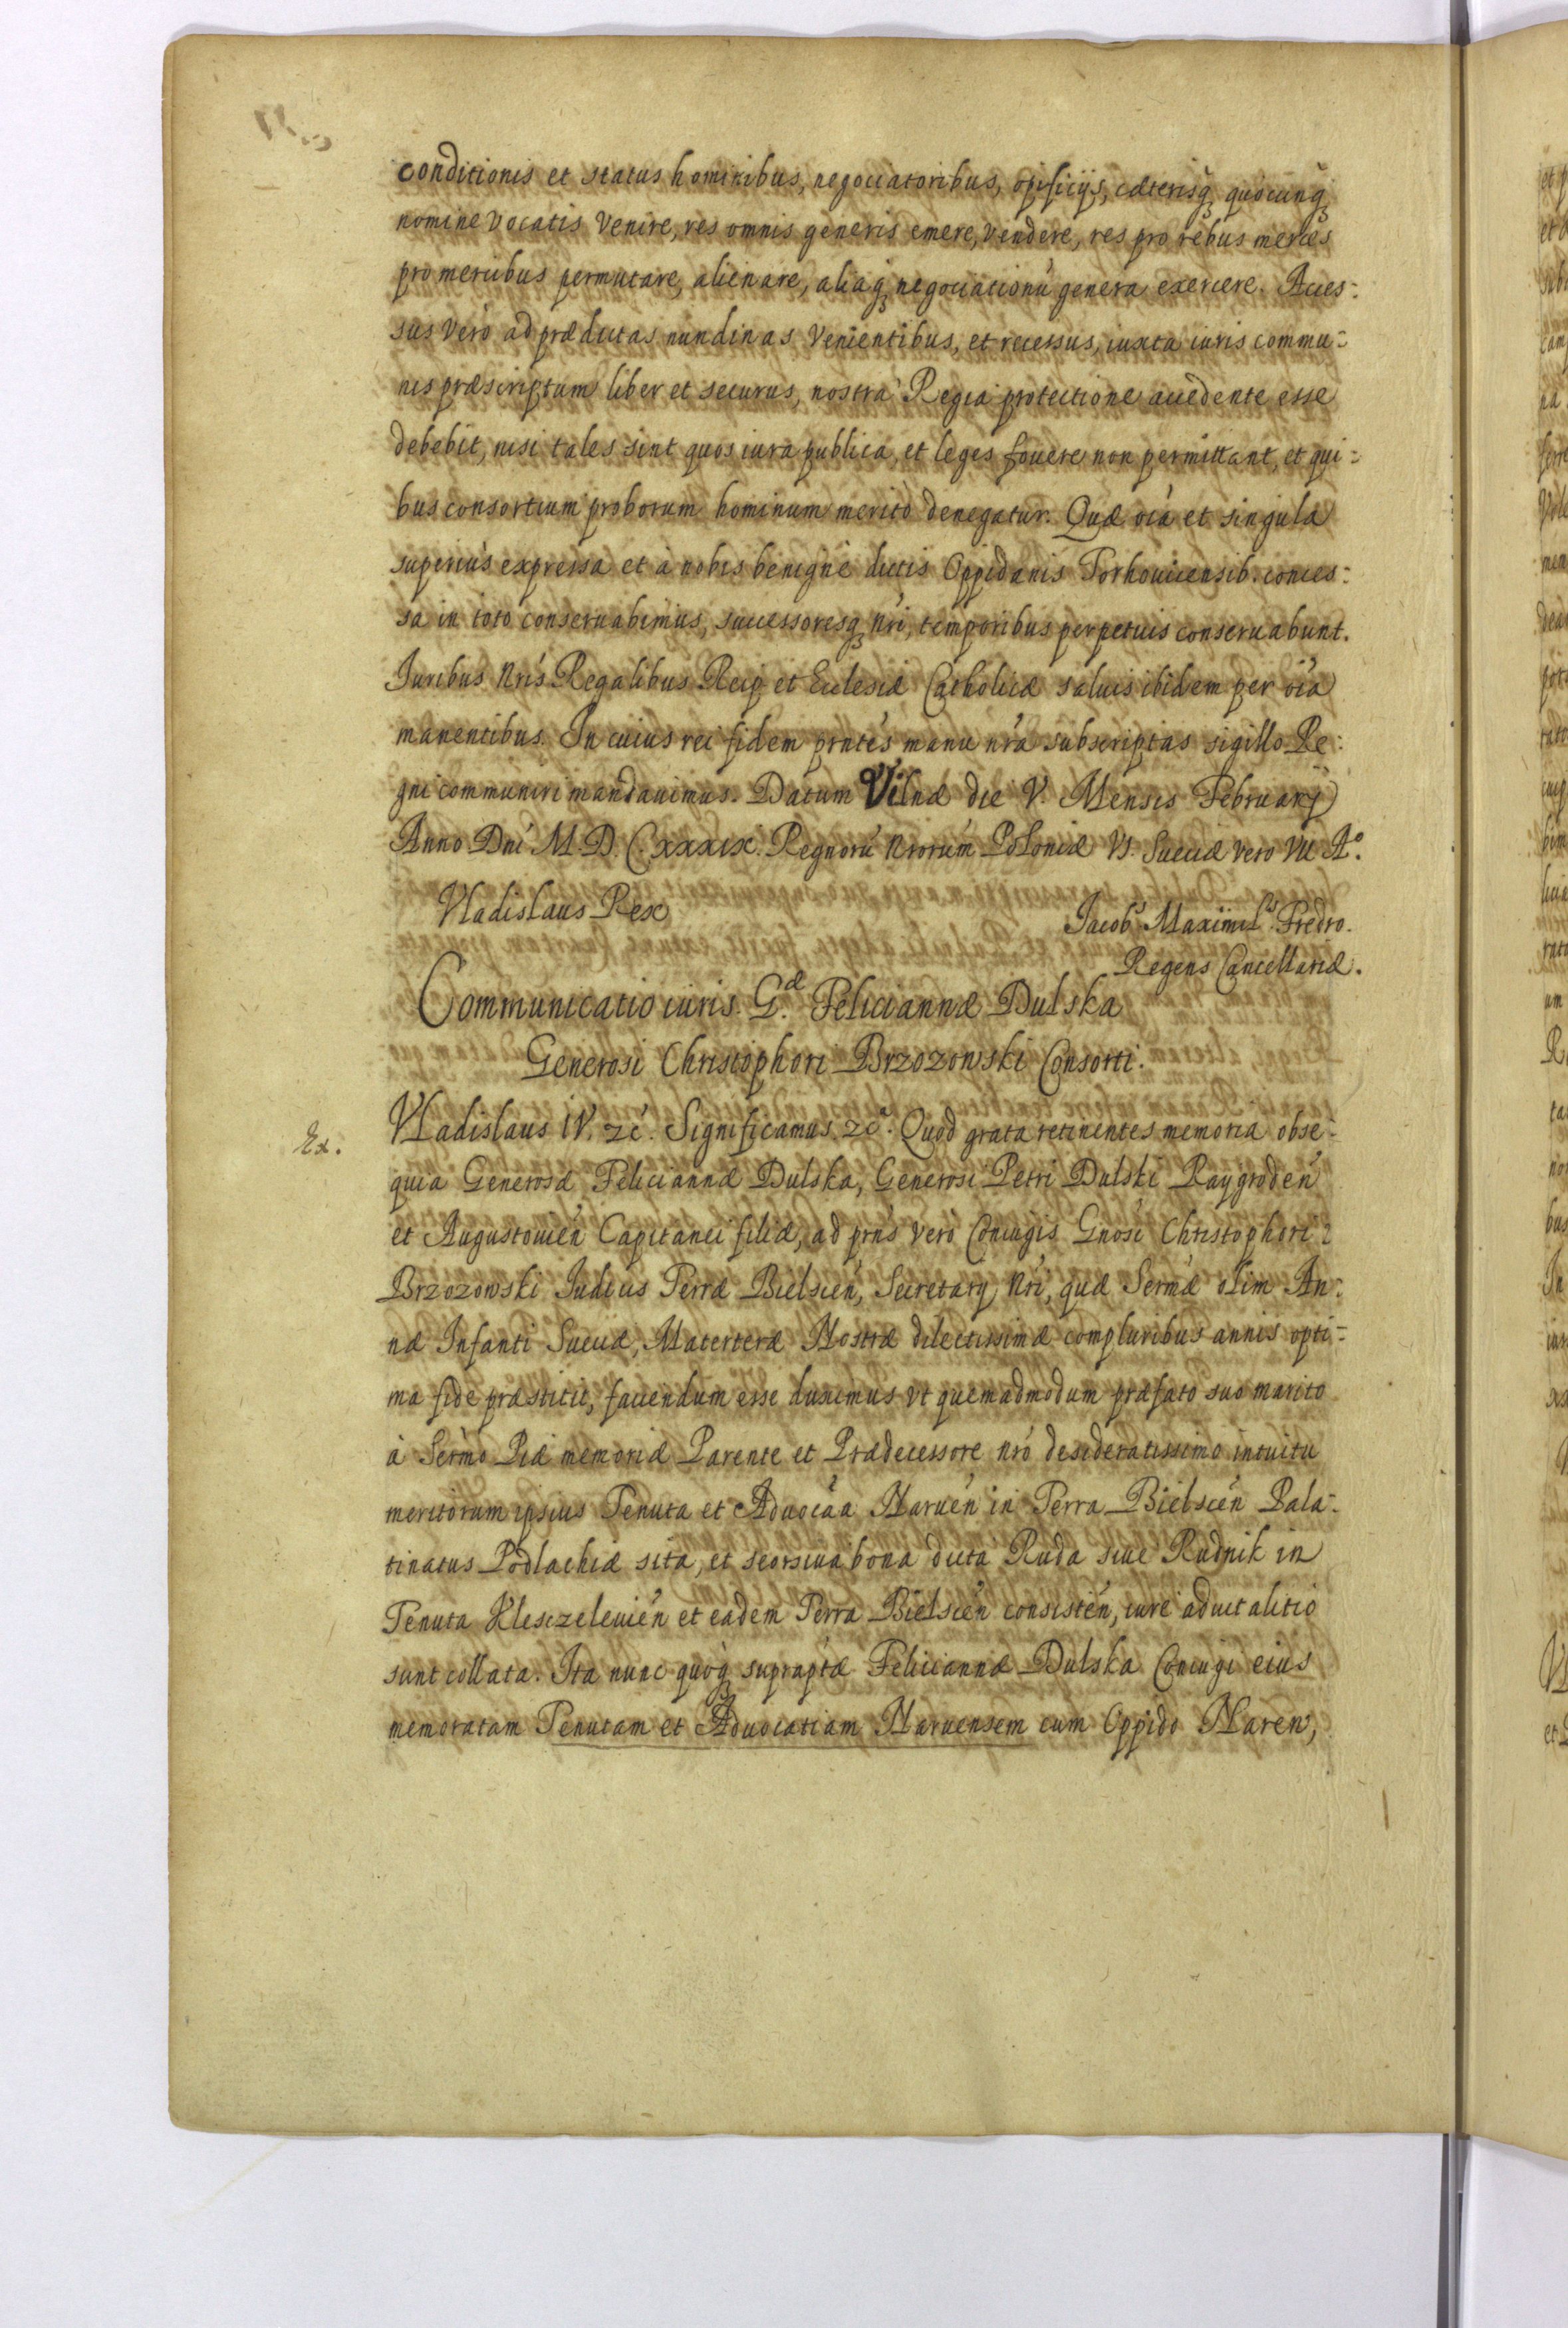 conditionis et status hominibus, negociatoribus, opificijs, cæterisq, quocunq,
nomine vocatis venire, res omnis generis emere, vendere, res pro rebus merces
pro mercibus permutare, alienare, aliaq, negociationu' genera exercere. Acces=
sus verò ad prædictas nundinas venientibus, et recessus, iuxta iuris commu=
nis præscriptum liber et securus, nostra Regia protectione accedente esse
debebit, nisi tales sint quos iura publica, et leges fouere non permittant, et qui=
bus consortium proborum hominum meritò denegatur. Quæ oia et singula
superius expressa et à nobis benignè dictis Oppidanis Torhouicensib. conces=
sa in toto conseruabimus, successoresq, nri, temporibus perpetuis conseruabunt.
Juribus nris Regalibus Reip et Ecclesiæ Catholicæ saluis ibidem per oia
manentibus. In cuius rei fidem prntes manu nra subscriptas sigillo Re=
gni communiri mandauimus. Datum Vilnæ die V. Mensis Februarij
Anno Dni M.D.C.xxxix. Regnoru' nrorum Poloniæ VI. Sueciæ vero VII A°.
Vladislaus Rex
Jacobs Maximils Fredro.
Regens Cancellariæ.
Communicatio iuris. G.æ Feliciannæ Dulska
Generosi Christophori Brzozowski Consorti.
Ex.
Vladislaus IV. zc. Significamus. zc. Quod grata retinentes memoria obse=
quia Generosæ Feliciannæ Dulska, Generosi Petri Dulski Raygroden
et Augustouien Capitanei filiæ, ad prns verò Coniugis Gnosi Christophori
Brzozowski Judicis Terræ Bielscen, Secretarij nri, quæ Sermæ olim An=
næ Infanti Sueciæ, Materteræ Nostræ dilectissimæ compluribus annis opti=
ma fide præstitit, faciendum esse duximus vt quemadmodum præfato suo marito
à Sermo Piæ memoriæ Parente et Prædecessore nrò desideratissimo intuitu
meritorum ipsius Tenuta et Aduocàa Naruen in Terra Bielscen Pala=
tinatus Podlachiæ sita, et seorsiua bona dicta Ruda siue Rudnik in
Tenuta Klesczeleuien et eadem Terra Bielscen consisten, iure aduitalitio
sunt collata. Ita nunc quoq, supraptæ Feliciannæ Dulska Coniugi eius
memoratam Tenutam et Aduocatiam Naruensem cum Oppido Narew,